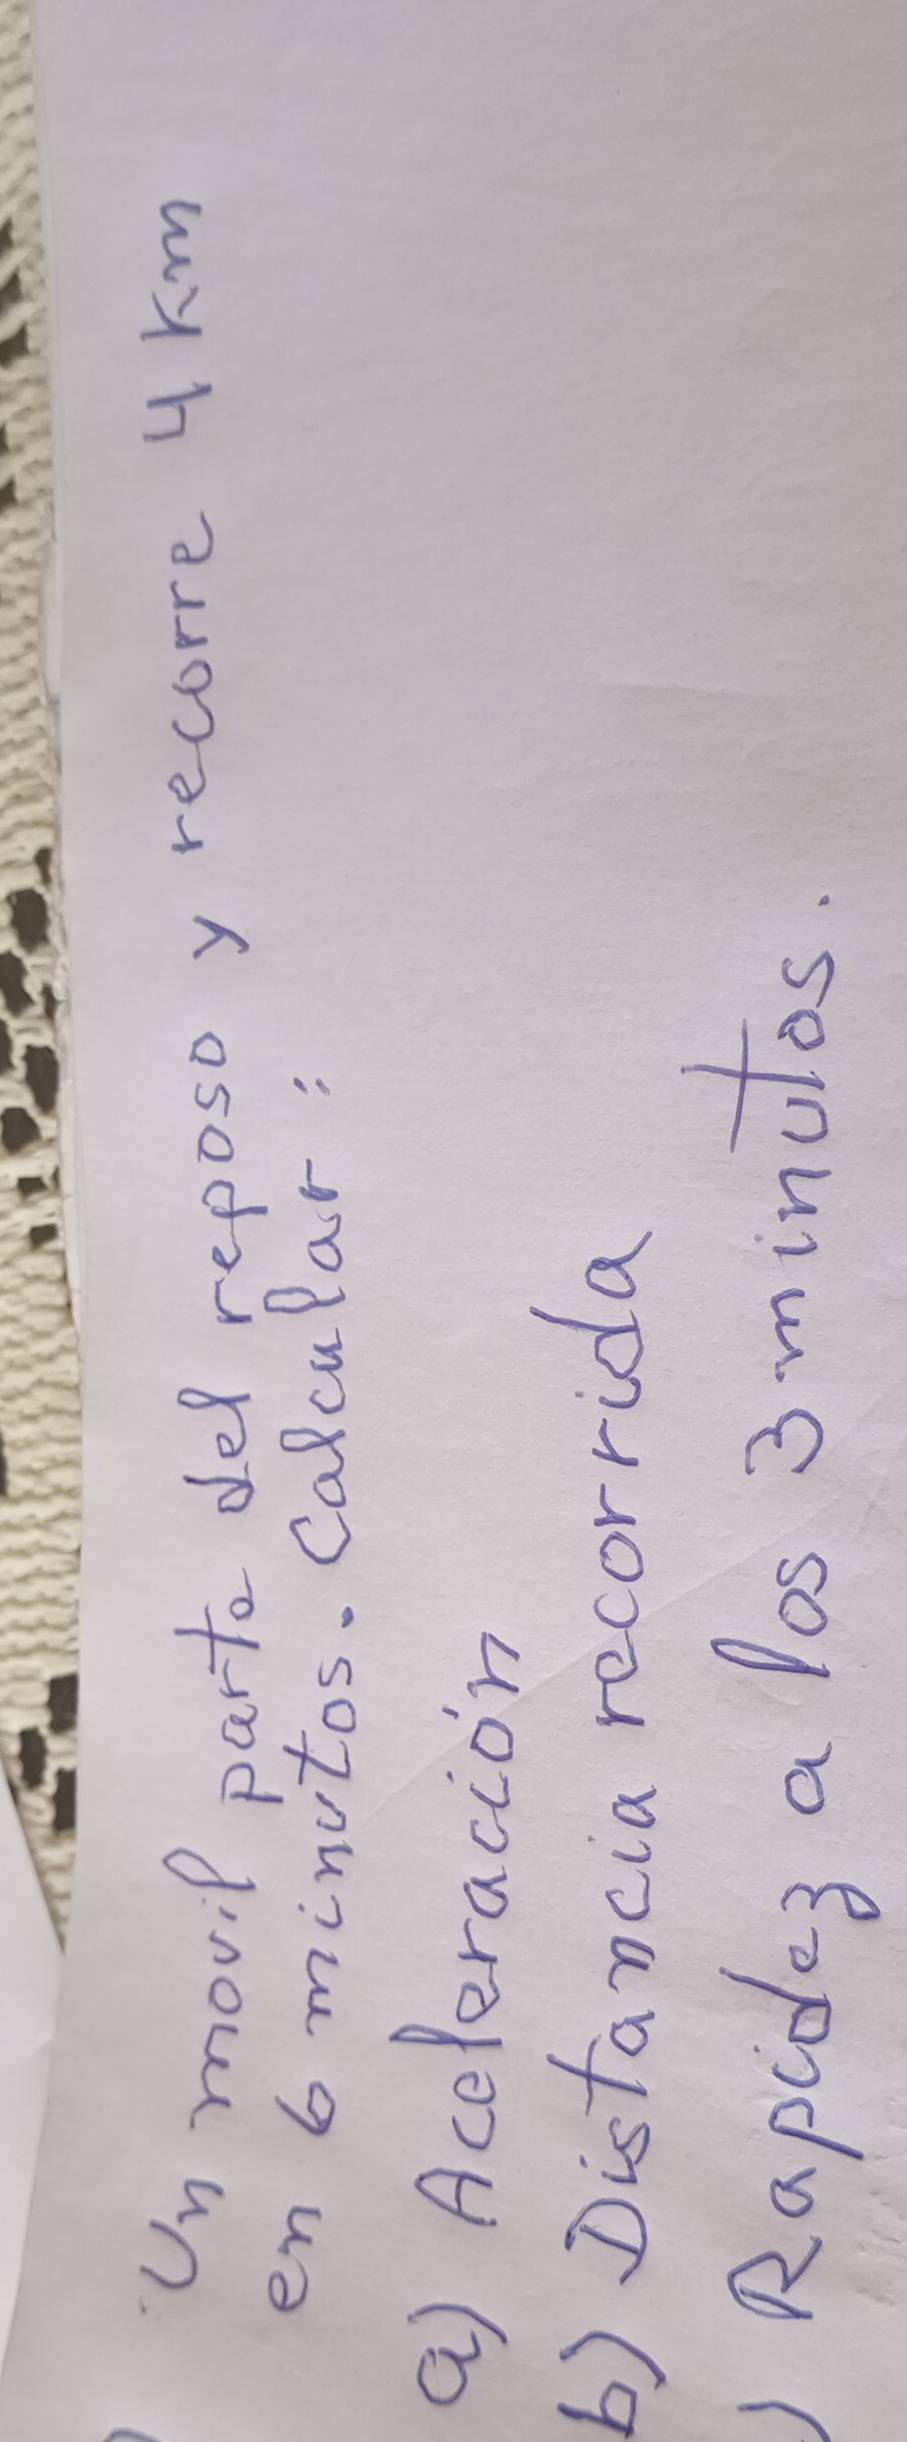 Un movil parte del reposo y recorre 4 km
en 6 minutos. Calcular:
a) Aceleración
b) Distancia recorrida
) Rapidez a los 3 minutos.